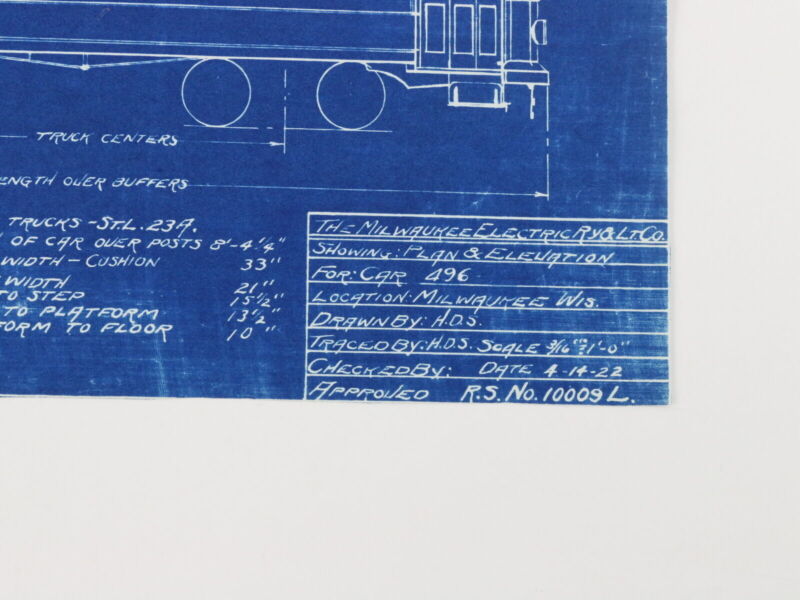 TRUCK CENTERS
LENGTH OVER BUFFERS
TRUCKS - STL. 23A.
OF CAR OVER POSTS 8'-4 1/4"
WIDTH - CUSHION 33"
WIDTH 21"
TO STEP 15 1/2"
TO PLATFORM 13 1/2"
FORM TO FLOOR 10"
THE MILWAUKEE ELECTRIC RY & LT CO.
SHOWING: PLAN & ELEVATION
FOR: CAR 496
LOCATION: MILWAUKEE WIS.
DRAWN BY: H.D.S.
TRACED BY: H.D.S. SCALE 3/16" = 1'-0"
CHECKED BY: DATE 4-14-22
APPROVED R.S. NO. 10009 L.